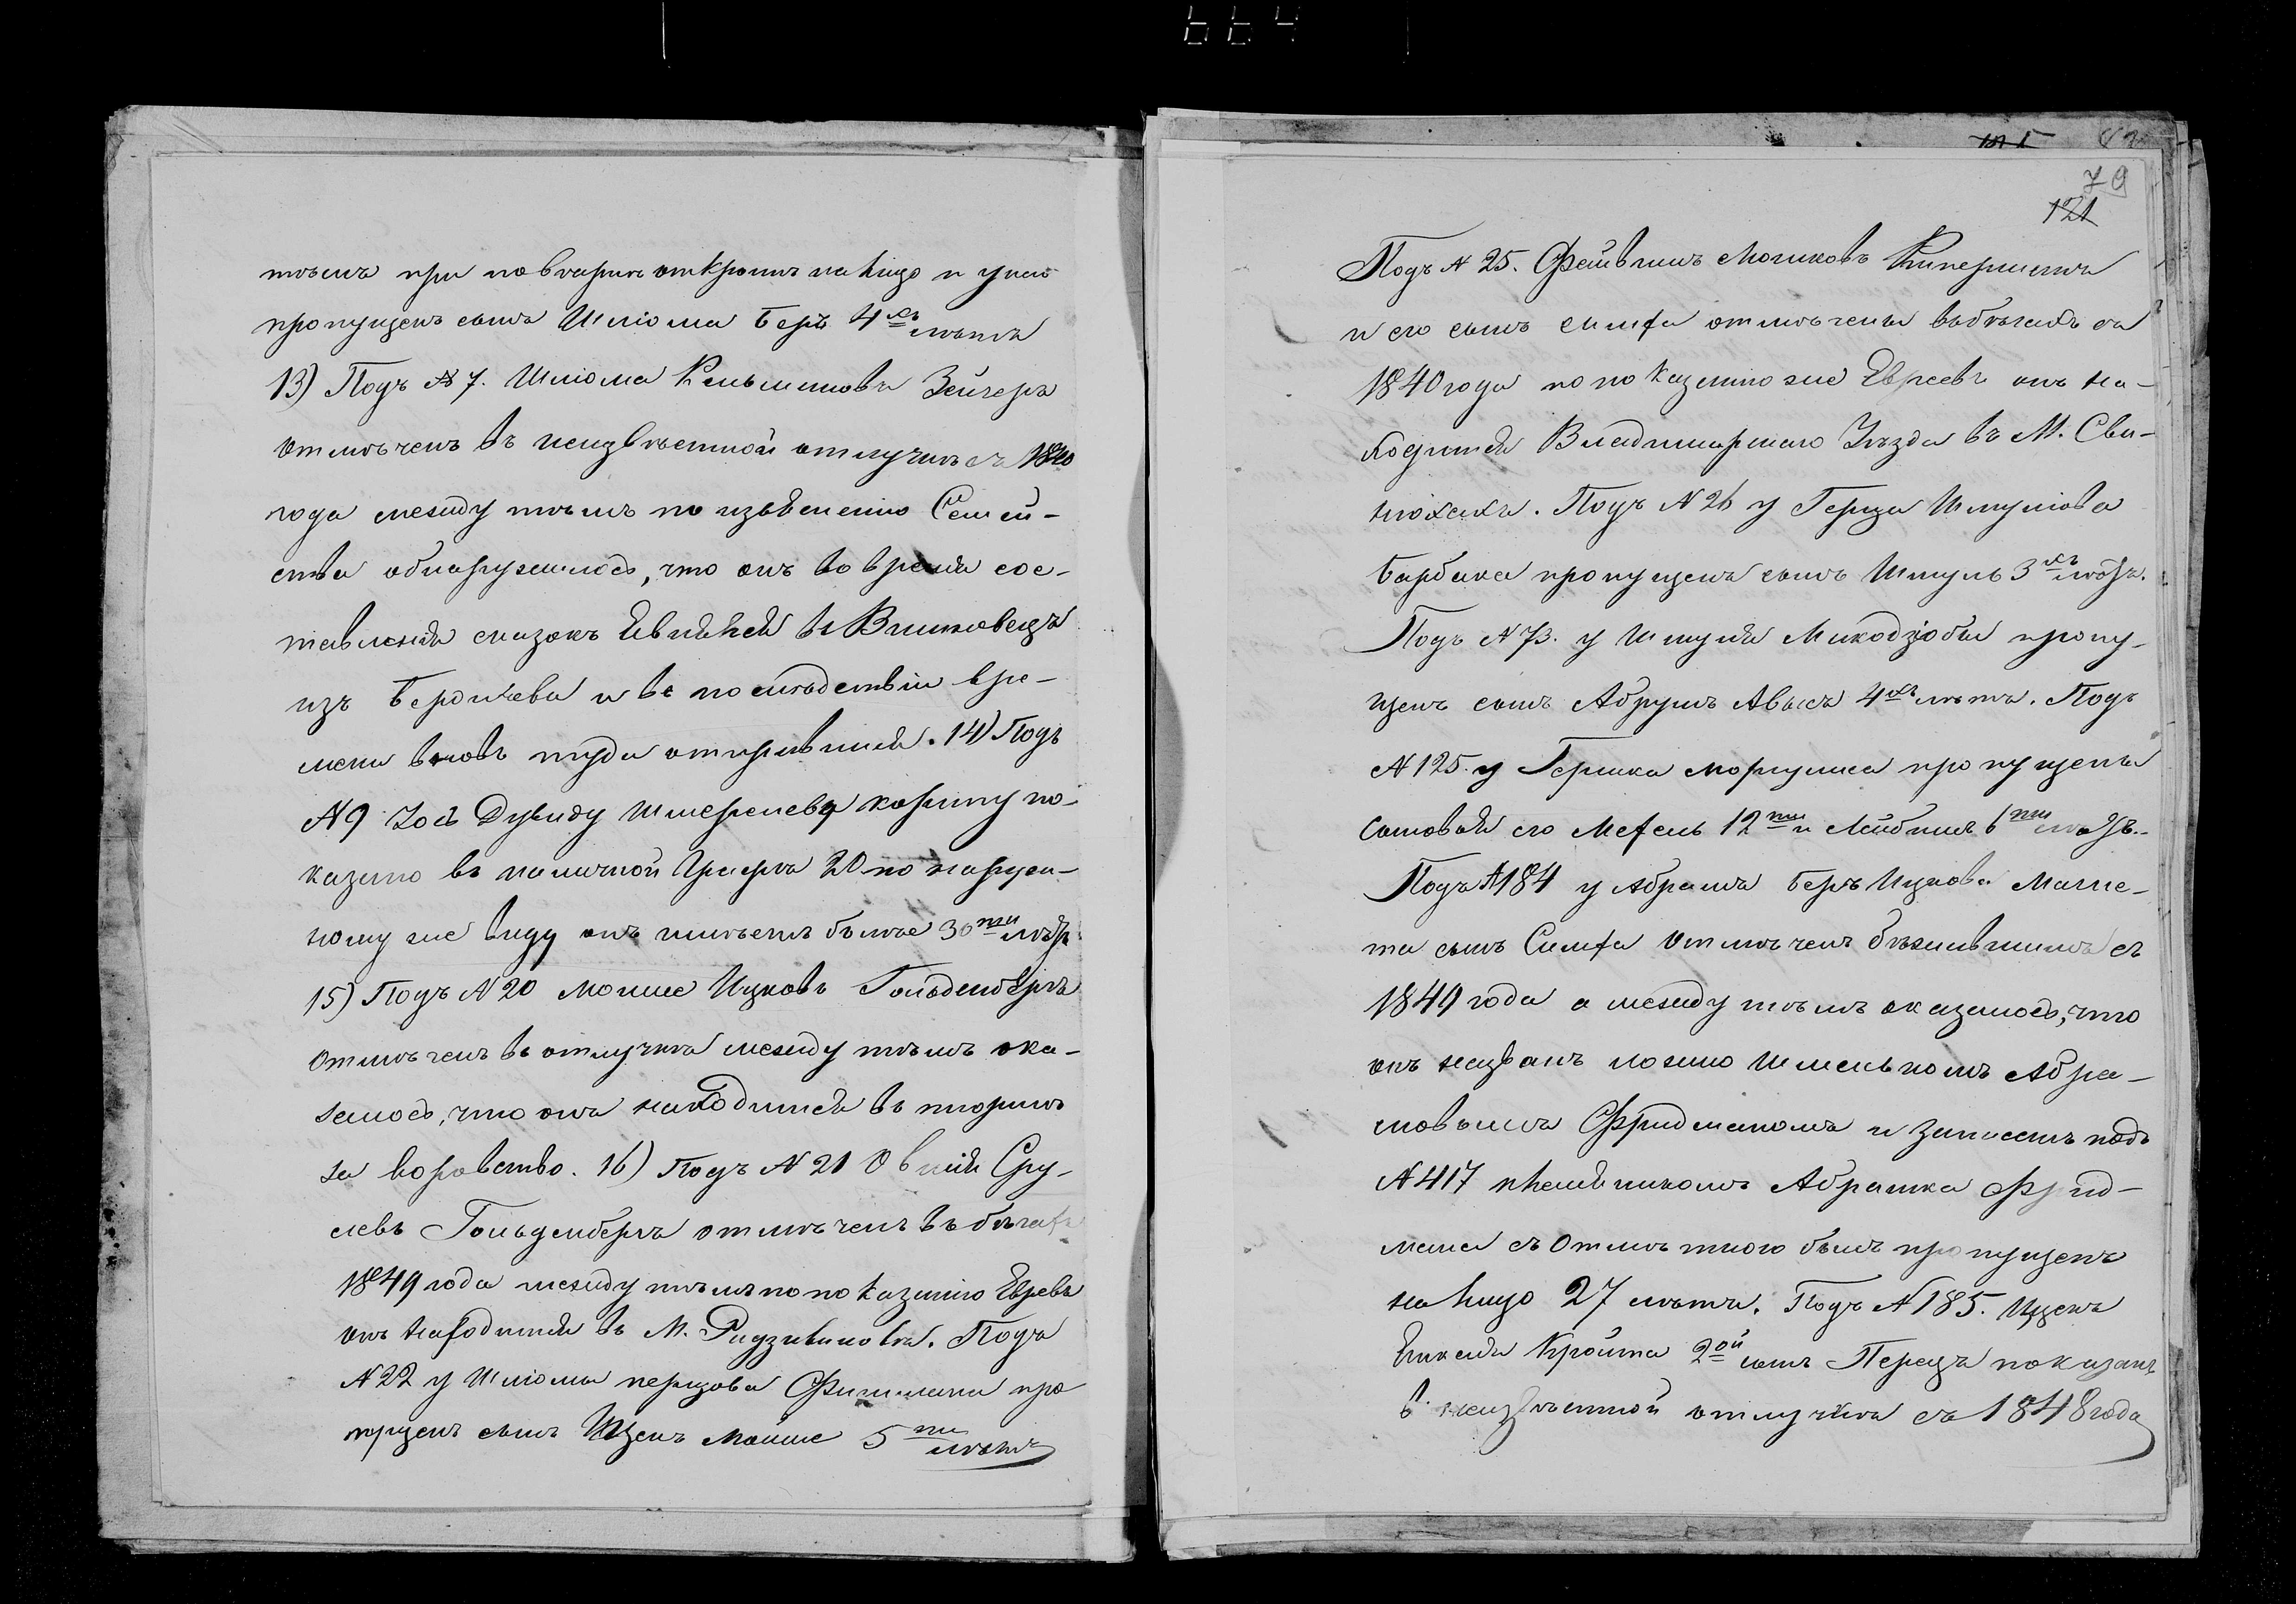 тѣмъ при повѣркѣ открытъ на лицо и у него
пропущенъ сынъ Шліома Беръ 4хъ лѣтъ
13) Подъ № 7. Шліома Кельмановъ Зейгеръ
отмѣченъ въ неизвѣстной отлучкѣ съ 1840
года между тѣмъ по изъявленію Семей-
ства обнаружилось, что онъ во время сос-
тавленія сказокъ явился въ Вишновецъ
изъ Бердичева и въ послѣдствіи вре-
мени вновь туда отправился. 14) Подъ
№ 9 Іосъ Дувиду Шмерелеву показано
казано въ наличной Графѣ 20 по наруж-
ному же виду онъ имѣетъ болѣе 30ти лѣтъ
15) Подъ № 20 Мошке Ицковъ Гольденбергъ
отмѣченъ въ отлучкѣ между тѣмъ ока-
залось, что онъ находится въ тюрьмѣ
за воровство. 16) Подъ № 21 Овшія Сру-
левъ Гольденбергъ отмѣченъ въ бѣгахъ
1849 года между тѣмъ по показанію Евреевъ
онъ находится въ М. Радзивиловѣ. Подъ
№ 22 у Шліомы Перцова Фишмана про
пущенъ сынъ Ицекъ Мойше 5ти лѣтъ
79
121
Подъ № 25. Фейвишъ Мошковъ
и его сынъ Симха отмѣчены въ бѣгахъ съ
1840 года по показанію же Евреевъ онъ на-
ходится Владимірскаго Уѣзда въ М. Сви-
нюхахъ. Подъ № 26 у Герша Шмулiова
Барбака пропущенъ сынъ Шмуль 3хъ лѣтъ.
Подъ № 73. у Шмуля Микодзюбы пропу-
щенъ сынъ Абрумъ Авысъ 4хъ лѣтъ. Подъ
№ 125. у Гершка Моргулиса пропущены
сыновья его Мехель 12ти и Лейбишъ 6ти лѣтъ.-
Подъ № 184 у Абрама Беръ Ицкова Магне-
та сынъ Симха отмѣченъ бѣжавшимъ съ
1849 года а между тѣмъ оказалось, что
онъ названъ ложно Шмелькомъ Абра-
мовымъ Фридманомъ и записанъ подъ
№ 417 племянникомъ Абрамка Фрид-
мана съ отмѣткою былъ пропущенъ
на лицо 27 лѣтъ. Подъ № 185. Ицека
Янкеля Кройта 2ой сынъ Перецъ показанъ
въ неизвѣстной отлучкѣ съ 1848 года